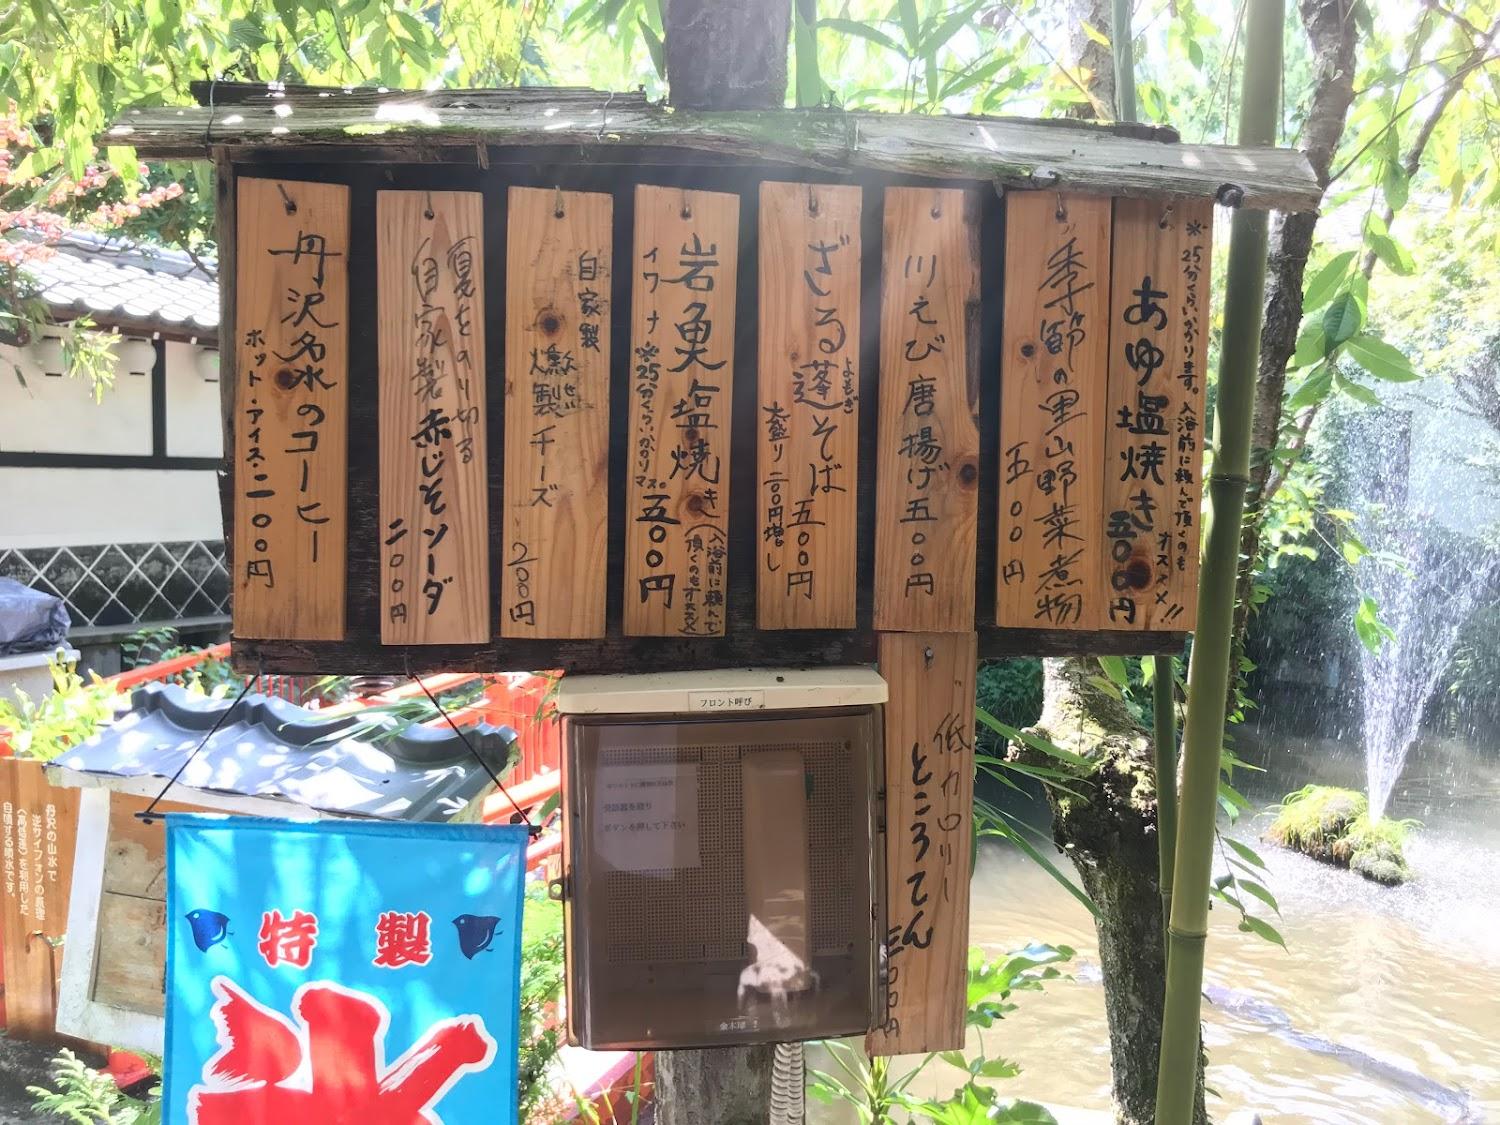 ※25分くらいかかります。入浴前に頼んで頂くのも
オススメ!!
あゆ塩焼き 五〇〇円
季節の里山野菜煮物
五〇〇円
川えび唐揚げ五〇〇円
ざる蓬そば五〇〇円
よもぎ
大盛り二〇〇円増し
岩魚塩焼き
イワナ
※25分くらいかかりマス。
五〇〇円
(入浴前に頼んで
頂くのもオススメ)
自家製
燻製チーズ
200円
夏をのり切る
自家製赤じそソーダ
二〇〇円
丹沢名水のコーヒー
ホット・アイス・二〇〇円
低カロリー
ところてん
三〇〇円
フロント呼び
受話器を取り
ボタンを押して下さい
特製
氷
丹沢の山水で
逆サイフォンの原理
(高低差)を利用した
自噴する噴水です。